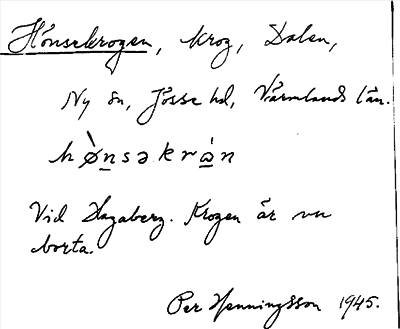 Hönsekrogen, krog, Dalen,
Ny sn, Jösse hd, Värmlands län.
hø̀nsəkrån
Vid Hagaberg. Krogen är nu
borta.
Per Henningsson 1945.